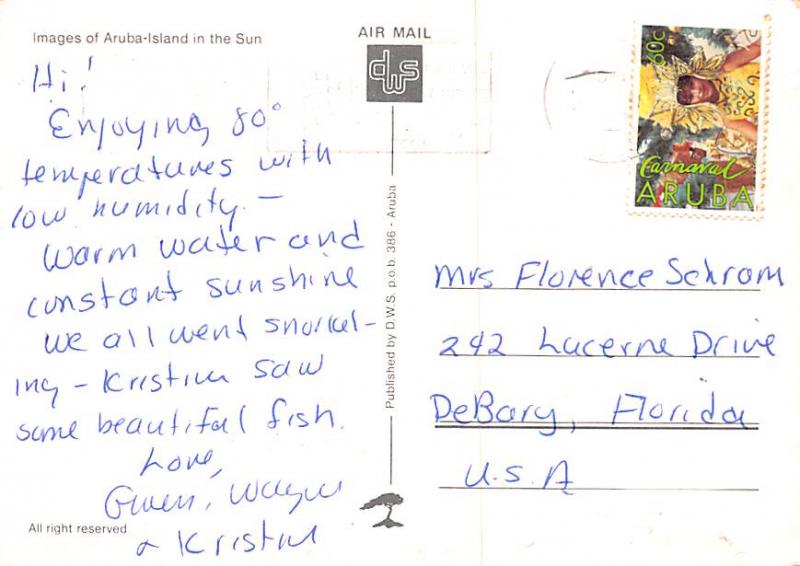 Images of Aruba-Island in the Sun
AIR MAIL
dws
Hi!
Enjoying 80°
temperatures with
low humidity. —
Warm water and
constant sunshine
We all went snorkel-
ing - Kristin saw
some beautiful fish.
Love,
Gwen, Wayne
& Kristin
All right reserved
Published by D.W.S. p.o.b. 386 - Aruba
60c
Carnaval
ARUBA
Mrs Florence Schram
242 Lucerne Drive
DeBary, Florida
U.S.A